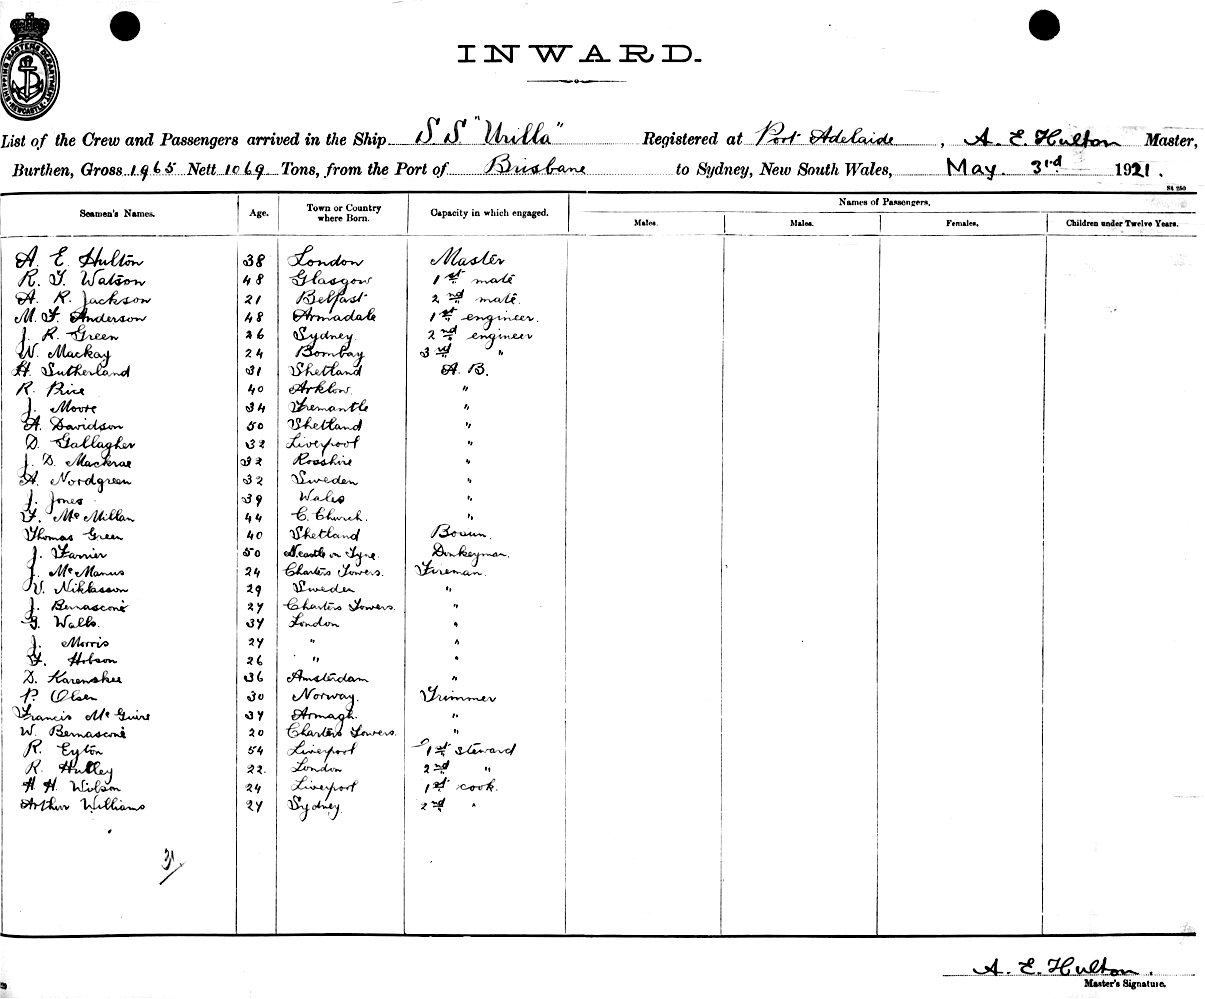 SHIPPING MASTERS DEPARTMENT NEWCASTLE
INWARD.
List of the Crew and Passengers arrived in the Ship SS "Urilla" Registered at Port Adelaide, A. E. Hulton Master,
Burthen, Gross 1965 Nett 1069 Tons, from the Port of Brisbane to Sydney, New South Wales, May 3rd 1921.
St 250
Seamen's Names. Age. Town or Country where Born. Capacity in which engaged. Names of Passengers.
Males. Males. Females. Children under Twelve Years.
A. E Hulton 38 London Master
R. T. Watson 48 Glasgow 1st mate
A. R. Jackson 21 Belfast 2nd mate.
M. F. Anderson 48 Armadale 1st engineer.
J. R. Green 26 Sydney. 2nd engineer
W. Mackay 24 Bombay 3rd "
H. Sutherland 31 Shetland A. B.
R. Price 40 Arklow. "
J. Moore 34 Fremantle "
A. Davidson 50 Shetland "
D. Gallagher 32 Liverpool "
J. D. Mackrae 32 Rosshire "
A. Nordgreen 32 Sweden "
J. Jones 39 Wales "
F. McMillan 44 C. Church. "
Thomas Green 40 Shetland Bosun.
J. Farrier 50 N.castle on Tyne. Donkeyman.
J. McManus 24 Charters Towers. Fireman.
V. Niklasson 29 Sweden "
J. Bernasconi 27 Charters Towers. "
G. Walls. 37 London "
J. Morris 27 " "
F. Hobson 26 " "
D. Karenshee 36 Amsterdam "
P. Olsen 30 Norway. Trimmer
Francis McGuire 37 Armagh. "
W. Bernasconi 20 Charters Towers. "
R. Eyton 54 Liverpool 1st steward
R. Hulley 22. London 2nd "
H. H. Wilson 24 Liverpool 1st cook.
Arthur Williams 27 Sydney. 2nd "
31
A. E. Hulton.
Master's Signature.